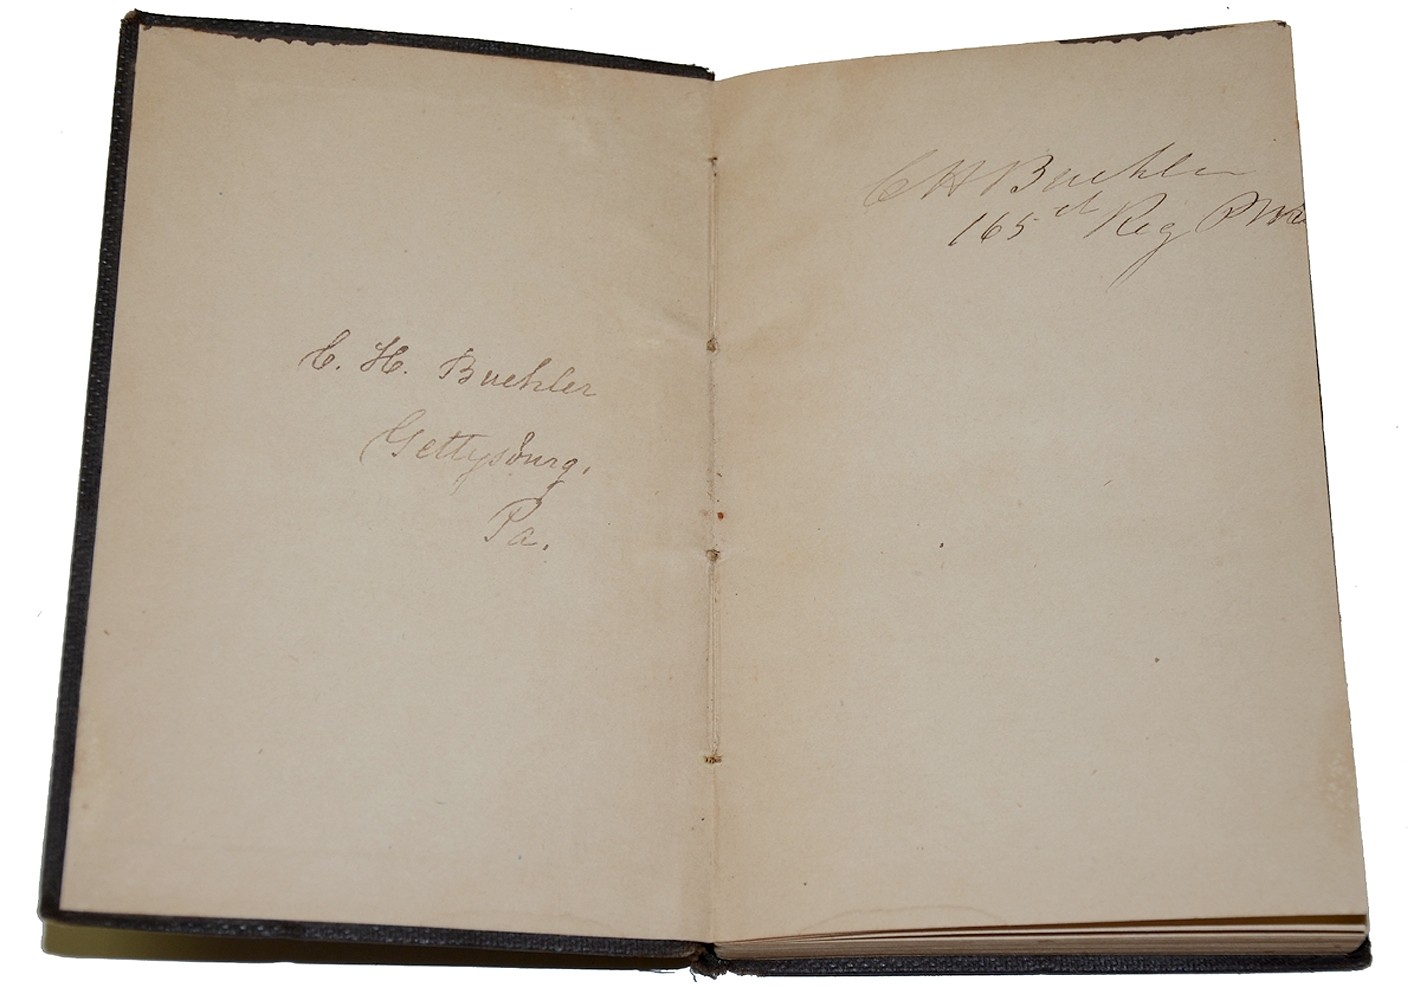 C. H. Buehler
Gettysburg,
Pa.
C H Buehler
165th Reg PM